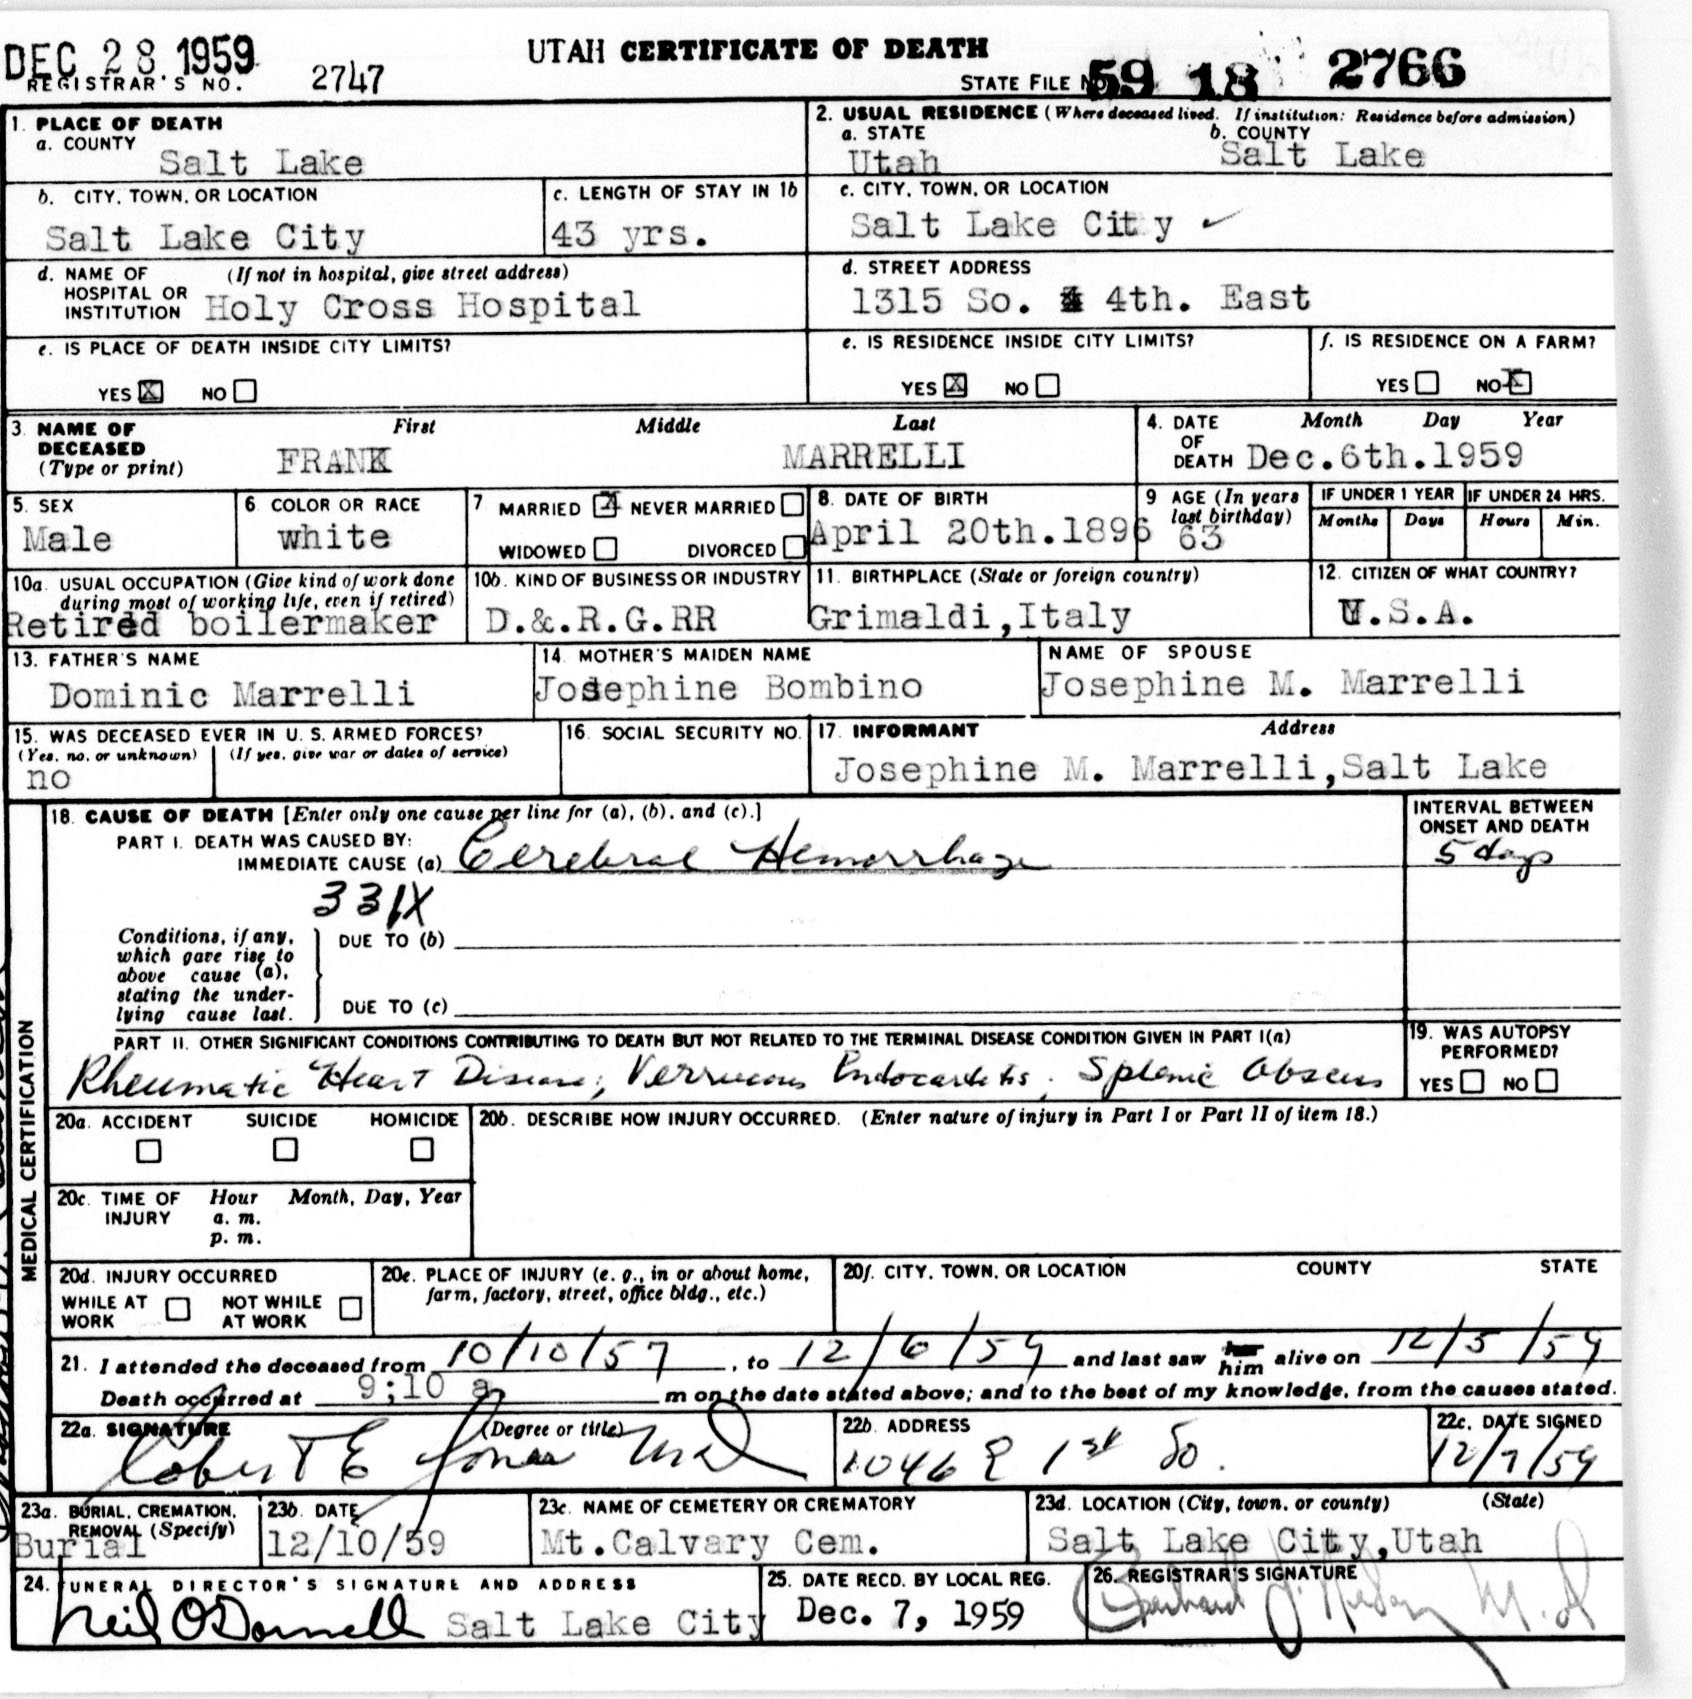 DEC 28 1959
UTAH CERTIFICATE OF DEATH
REGISTRAR'S NO. 2747
STATE FILE NO. 59 18 2766
1. PLACE OF DEATH
a. COUNTY
Salt Lake
2. USUAL RESIDENCE (Where deceased lived. If institution: Residence before admission)
a. STATE b. COUNTY
Utah Salt Lake
b. CITY, TOWN, OR LOCATION
Salt Lake City
c. LENGTH OF STAY IN 1b
43 yrs.
c. CITY, TOWN, OR LOCATION
Salt Lake City ✓
d. NAME OF (If not in hospital, give street address)
HOSPITAL OR
INSTITUTION Holy Cross Hospital
d. STREET ADDRESS
1315 So. 4th. East
e. IS PLACE OF DEATH INSIDE CITY LIMITS?
YES X NO
e. IS RESIDENCE INSIDE CITY LIMITS?
YES X NO
f. IS RESIDENCE ON A FARM?
YES NO X
3. NAME OF First Middle Last
DECEASED
(Type or print) FRANK MARRELLI
4. DATE Month Day Year
OF
DEATH Dec.6th.1959
5. SEX
Male
6. COLOR OR RACE
white
7 MARRIED X NEVER MARRIED
WIDOWED DIVORCED
8. DATE OF BIRTH
April 20th.1896
9 AGE (In years
last birthday)
63
IF UNDER 1 YEAR
Months Days
IF UNDER 24 HRS.
Hours Min.
10a. USUAL OCCUPATION (Give kind of work done
during most of working life, even if retired)
Retired boilermaker
10b. KIND OF BUSINESS OR INDUSTRY
D.&.R.G.RR
11. BIRTHPLACE (State or foreign country)
Grimaldi,Italy
12. CITIZEN OF WHAT COUNTRY?
U.S.A.
13. FATHER'S NAME
Dominic Marrelli
14. MOTHER'S MAIDEN NAME
Josephine Bombino
NAME OF SPOUSE
Josephine M. Marrelli
15. WAS DECEASED EVER IN U. S. ARMED FORCES?
(Yes, no, or unknown) (If yes, give war or dates of service)
no
16. SOCIAL SECURITY NO.
17. INFORMANT Address
Josephine M. Marrelli,Salt Lake
MEDICAL CERTIFICATION
18. CAUSE OF DEATH [Enter only one cause per line for (a), (b), and (c).]
PART I. DEATH WAS CAUSED BY:
IMMEDIATE CAUSE (a) Cerebral Hemorrhage
INTERVAL BETWEEN
ONSET AND DEATH
5 days
331X
Conditions, if any,
which gave rise to
above cause (a),
stating the under-
lying cause last.
DUE TO (b)
DUE TO (c)
PART II. OTHER SIGNIFICANT CONDITIONS CONTRIBUTING TO DEATH BUT NOT RELATED TO THE TERMINAL DISEASE CONDITION GIVEN IN PART I(a)
Rheumatic Heart Disease; Verrucous Endocarditis. Splenic Abscess
19. WAS AUTOPSY
PERFORMED?
YES NO
20a. ACCIDENT SUICIDE HOMICIDE
20b. DESCRIBE HOW INJURY OCCURRED. (Enter nature of injury in Part I or Part II of item 18.)
20c. TIME OF Hour Month, Day, Year
INJURY a. m.
p. m.
20d. INJURY OCCURRED
WHILE AT NOT WHILE
WORK AT WORK
20e. PLACE OF INJURY (e. g., in or about home,
farm, factory, street, office bldg., etc.)
20f. CITY, TOWN, OR LOCATION COUNTY STATE
21. I attended the deceased from 10/10/57, to 12/6/59 and last saw her him alive on 12/5/59
Death occurred at 9:10 a. m on the date stated above; and to the best of my knowledge, from the causes stated.
22a. SIGNATURE (Degree or title)
Robert E Jones M.D.
22b. ADDRESS
1046 E 1st So.
22c. DATE SIGNED
12/7/59
23a. BURIAL, CREMATION,
REMOVAL (Specify)
Burial
23b. DATE
12/10/59
23c. NAME OF CEMETERY OR CREMATORY
Mt.Calvary Cem.
23d. LOCATION (City, town, or county) (State)
Salt Lake City,Utah
24. FUNERAL DIRECTOR'S SIGNATURE AND ADDRESS
Neil O'Donnell Salt Lake City
25. DATE RECD. BY LOCAL REG.
Dec. 7, 1959
26. REGISTRAR'S SIGNATURE